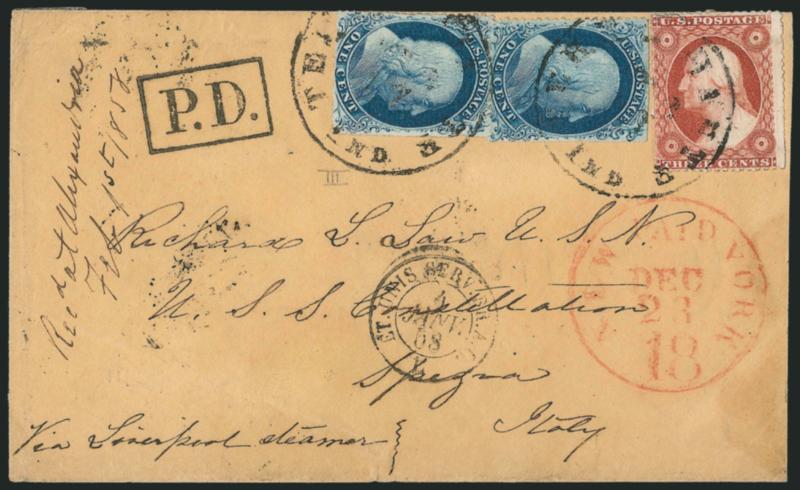 U.S. POSTAGE
ONE CENT
U.S. POSTAGE
ONE CENT
U.S. POSTAGE
THREE CENTS
IND.
IND
P.D.
Recd at Alexandria
Feb 1st / 1858
Richard L. Law U.S.N.
U.S.S. Constellation
Spezia
Italy
Via Liverpool steamer
NEW PAID YORK
DEC
23
18
ET. UNIS SERV. BR. A.C.
4
JANV
58